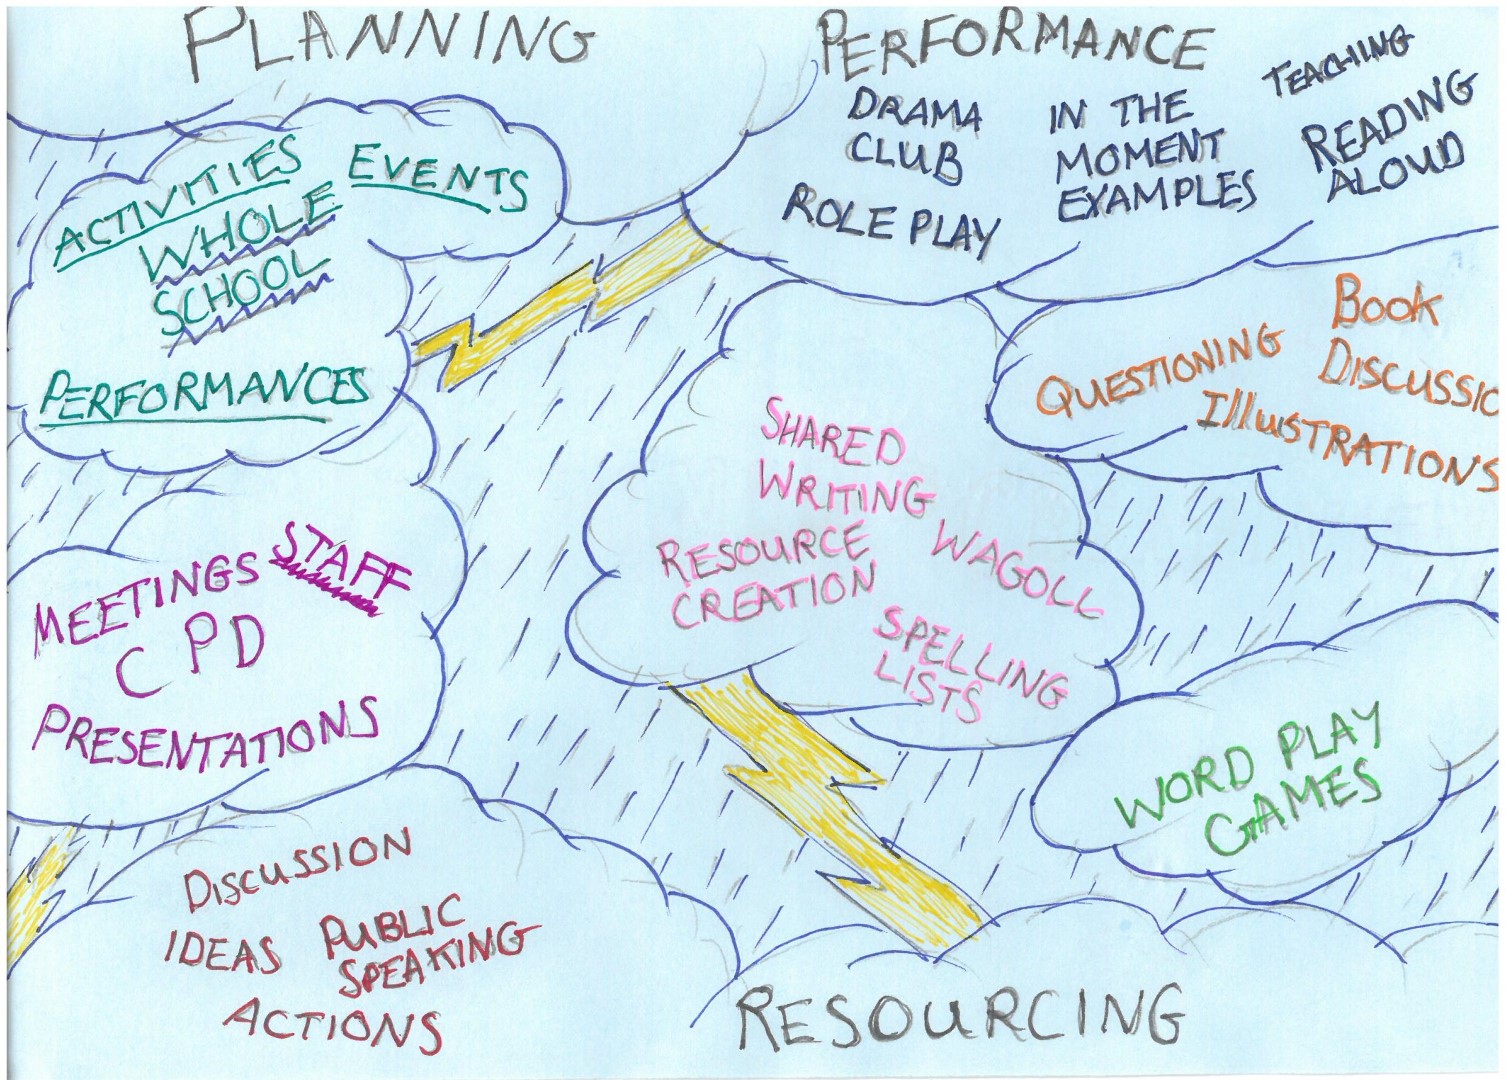 PLANNING
PERFORMANCE
ACTIVITIES
EVENTS
WHOLE
SCHOOL
PERFORMANCES
DRAMA
CLUB
ROLE PLAY
IN THE
MOMENT
EXAMPLES
TEACHING
READING
ALOUD
QUESTIONING
Book
DISCUSSIO
IllusTRATIONS
SHARED
WRITING
RESOURCE
CREATION
WAGOLL
SPELLING
LISTS
MEETINGS STAFF
CPD
PRESENTATIONS
WORD PLAY
GAMES
DISCUSSION
IDEAS
PUBLIC
SPEAKING
ACTIONS
RESOURCING